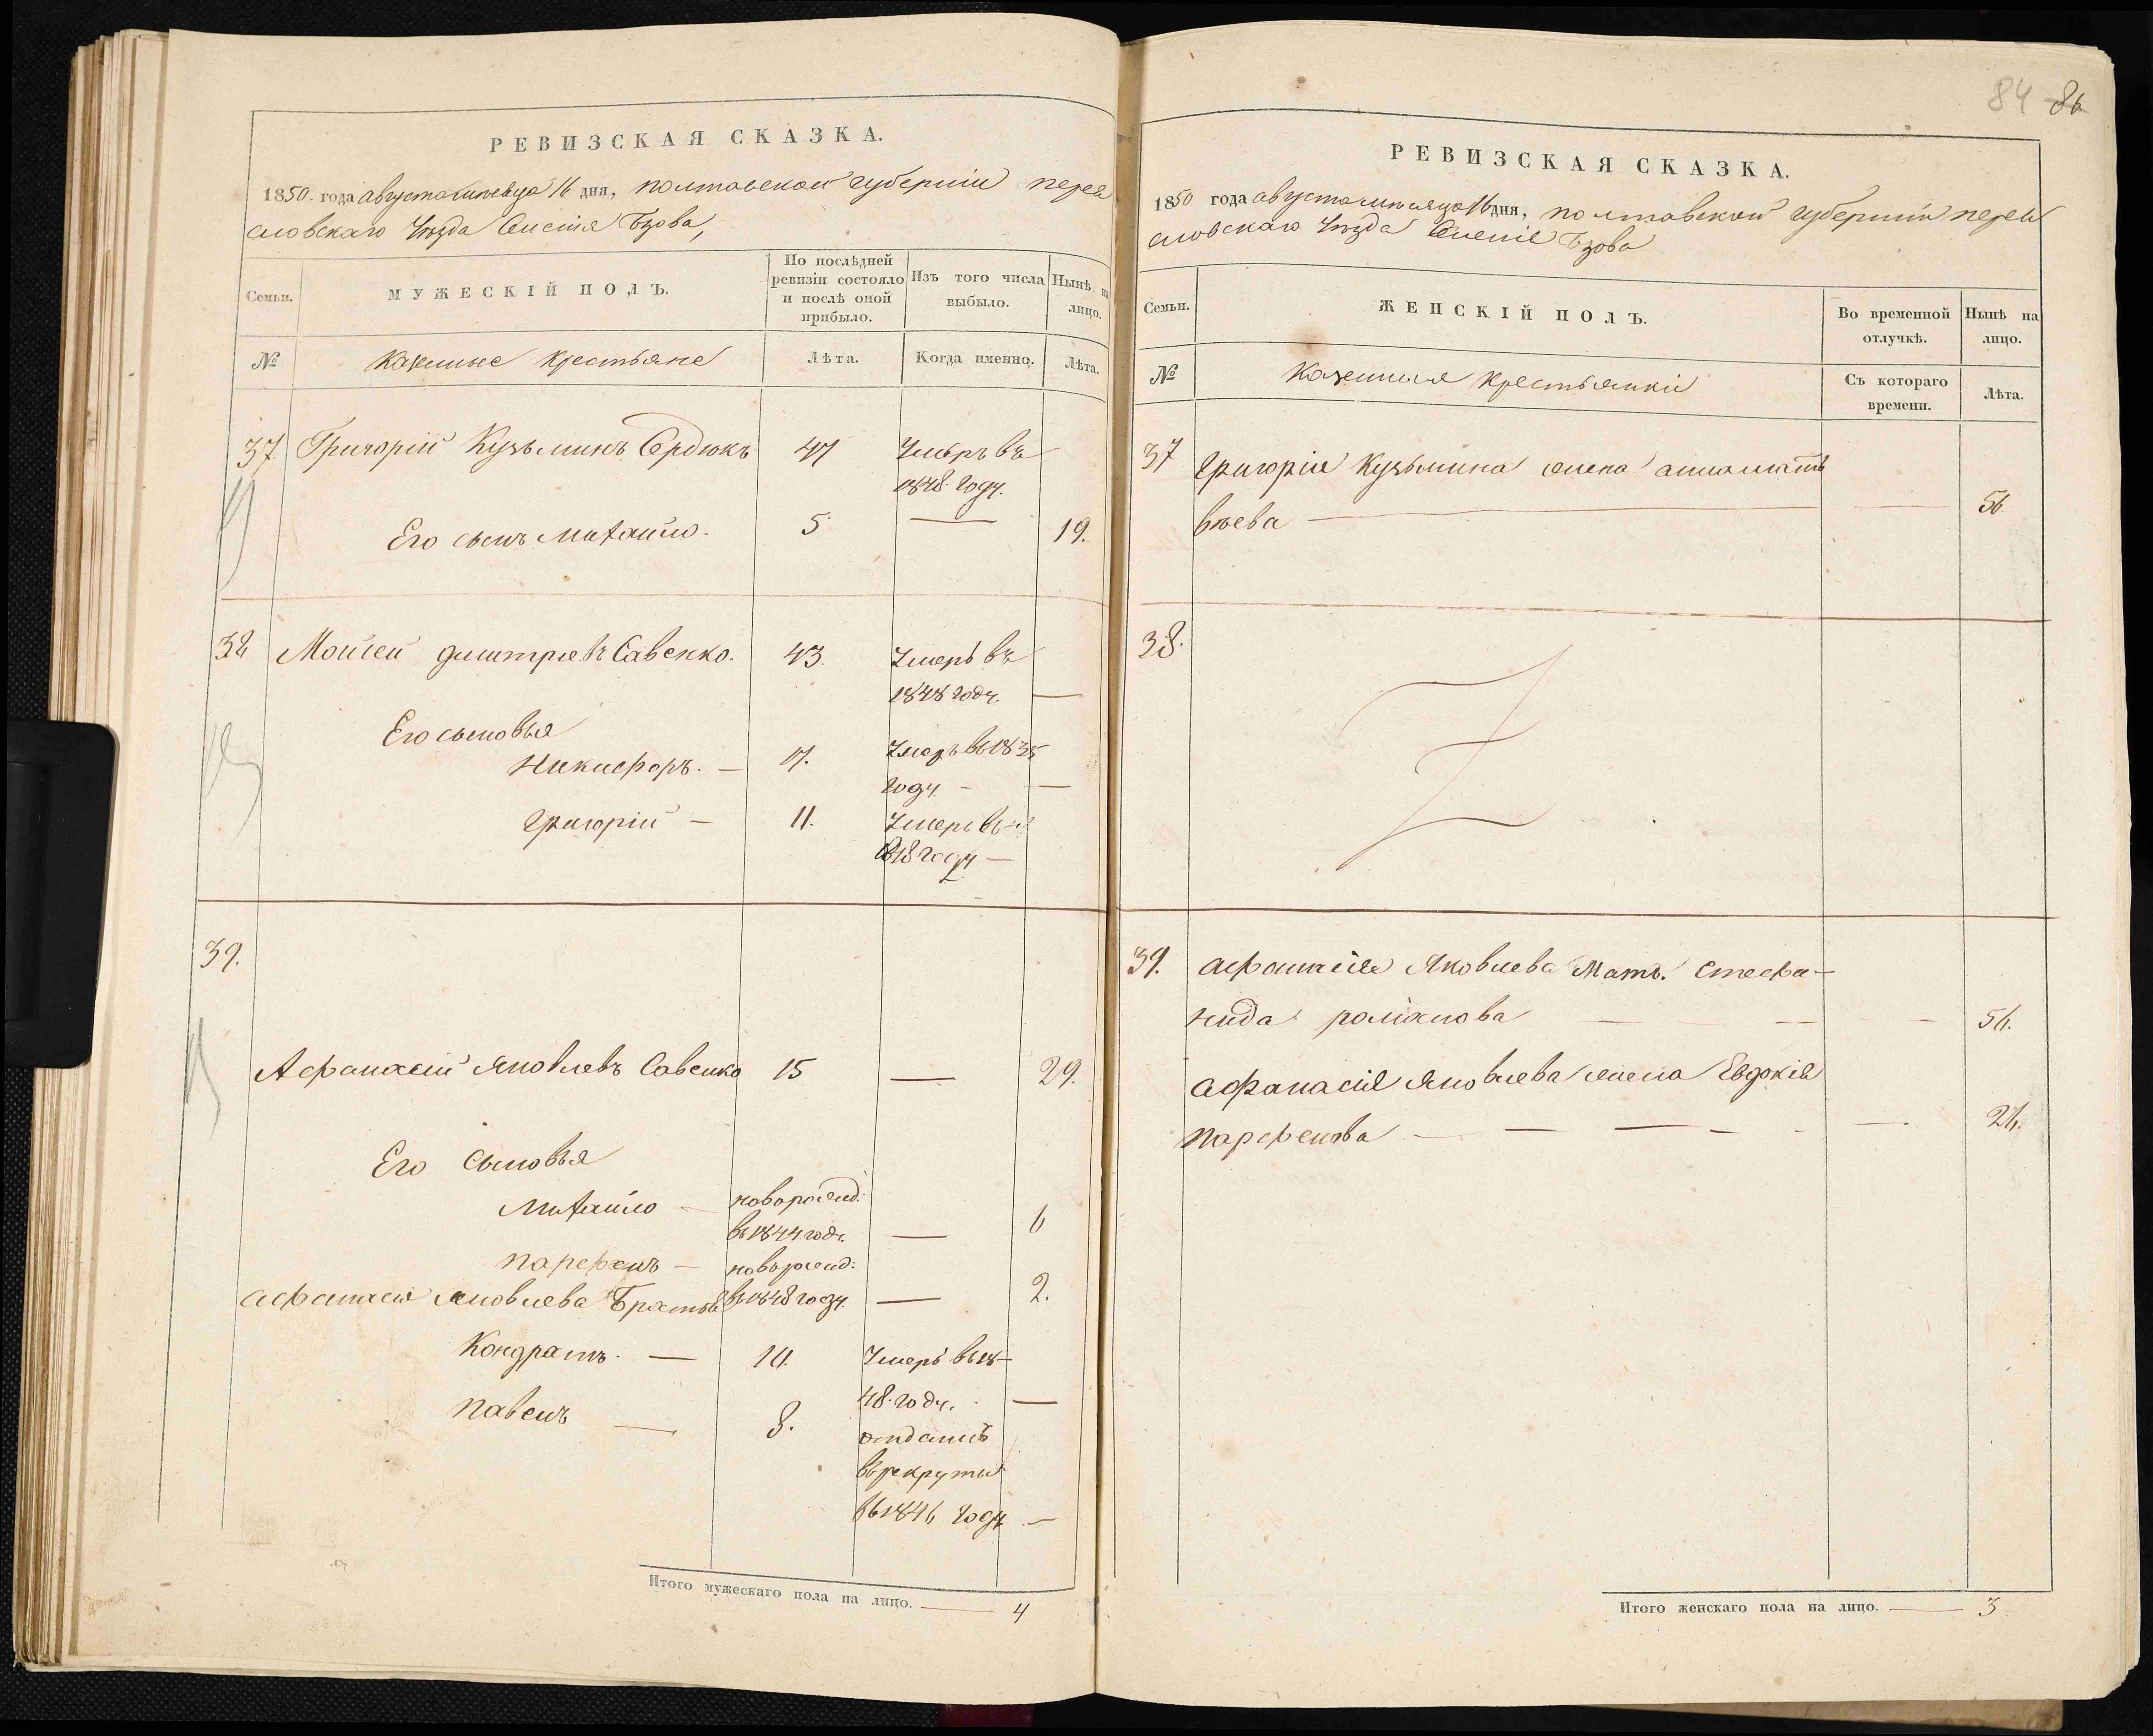 РЕВИЗСКАЯ СКАЗКА.
1850. года августа месеца 16 дня, полтавской губернии перея
словскаго уезда Селения Бзова,
Семьи.
МУЖЕСКІЙ ПОЛЪ.
По послѣдней
ревизіи состояло
и послѣ оной
прибыло.
Изъ того числа
выбыло.
Нынѣ на
лицо.
№
Казенные крестьяне
Лѣта.
Когда именно.
Лѣта.
37 Григорій Кузьминъ Сердюкъ 47 Умеръ въ
1848. году.
Его сынъ Михайло. 5 19.
38 Моисей дмитриевъ Савенко. 43. Умеръ въ
1848 году
Его сыновья
Никифоръ. Умеръ въ 1835
году
григорій 11. Умеръ въ
1848 году
39.
Афанасій Яковлевъ Савенко 15 29.
Его Сыновья
Михайло новорожд:
въ 1844 году. 6
парфенъ новорожд:
Афанасія Яковлева Братья въ 1848 году. 2.
Кондратъ. 10. Умеръ въ 18
48. году.
павелъ 8. отданъ
въ рекруты
въ 1846 году
Итого мужескаго пола на лицо. 4
84 86
РЕВИЗСКАЯ СКАЗКА.
1850 года августа месяца 16 дня, полтавской губерніи перея
словскаго уезда Селенія Бзова
Семьи.
ЖЕНСКІЙ ПОЛЪ.
Во временной
отлучкѣ.
Нынѣ на
лицо.
№
Казенныя крестьянки
Съ котораго
времени.
Лѣта.
37 григорія Кузьмина жена анна мат
вѣева 56
38.
39. афанасія Яковлева Мать. Стефа-
нида романова 56.
афанасія Яковлева жена Евдокія
парфенова 26.
Итого женскаго пола на лицо. 3